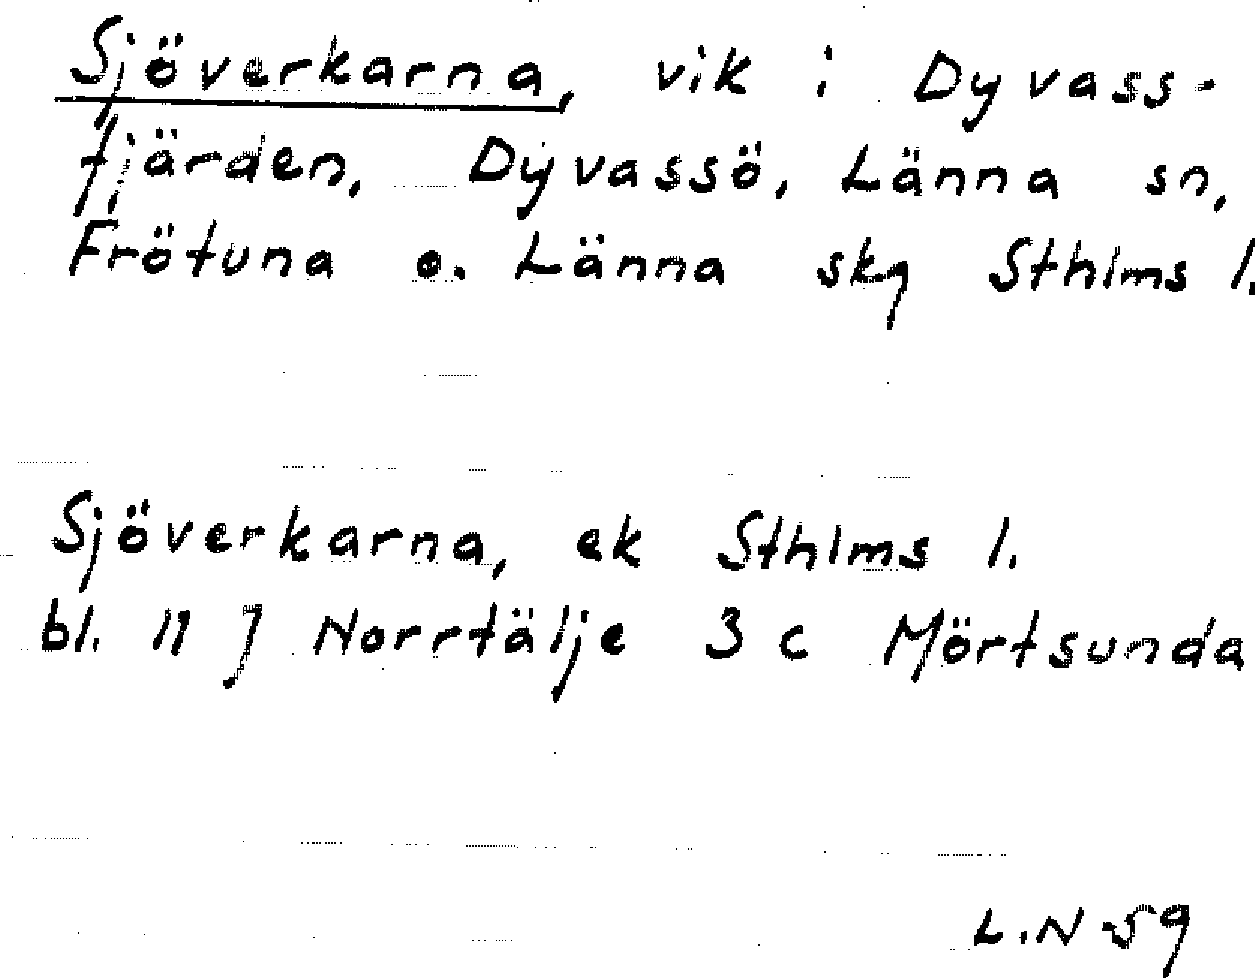 Sjöverkarna, vik i Dyvass-
fjärden, Dyvassö, Länna sn,
Frötuna o. Länna skg Sthlms l.
Sjöverkarna, ek Sthlms l.
bl. 11 J Norrtälje 3 c Mörtsunda
L.N 59